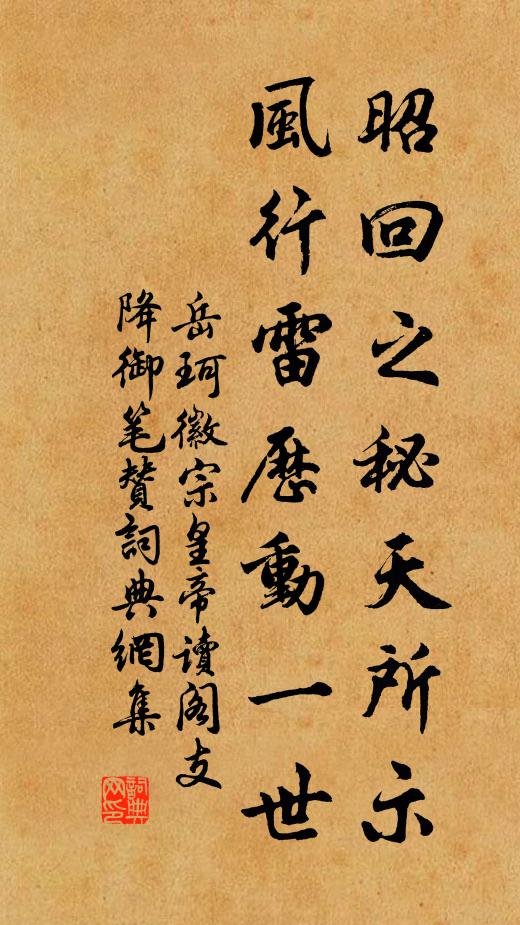 昭回之秘天所示
風行雷歷動一世
岳珂徽宗皇帝讀閣支
降御笔贊詞典網集
詞典网印